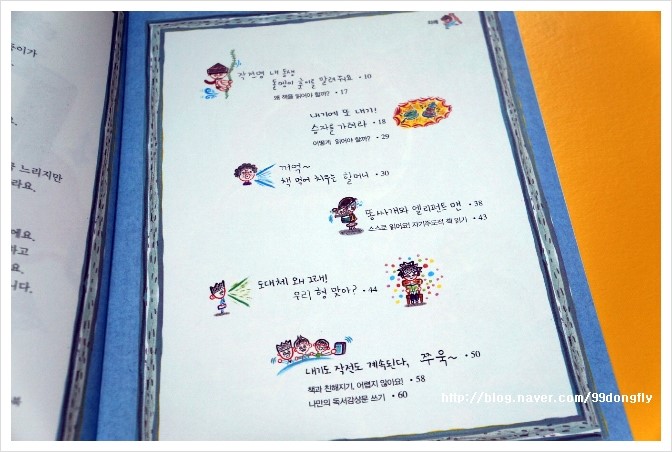 차례
작전명 내 동생
돌멩이 놀이를 말려줘요 • 10
왜 책을 읽어야 할까? • 17
내기에 또 내기!
승자를 가려라 • 18
어떻게 읽어야 할까? • 29
꺼억~
책 먹어 치우는 할머니 • 30
똥싸개와 엘리펀트 맨 • 38
스스로 읽어요! 자기주도적 책 읽기 • 43
도대체 왜 그래!
우리 형 맞아? • 44
내기도 작전도 계속된다, 쭈욱~ • 50
책과 친해지기, 어렵지 않아요! • 58
나만의 독서감상문 쓰기 • 60
느리지만
라요.
예요.
하고
요.
니다.
http://blog.naver.com/99dongfly